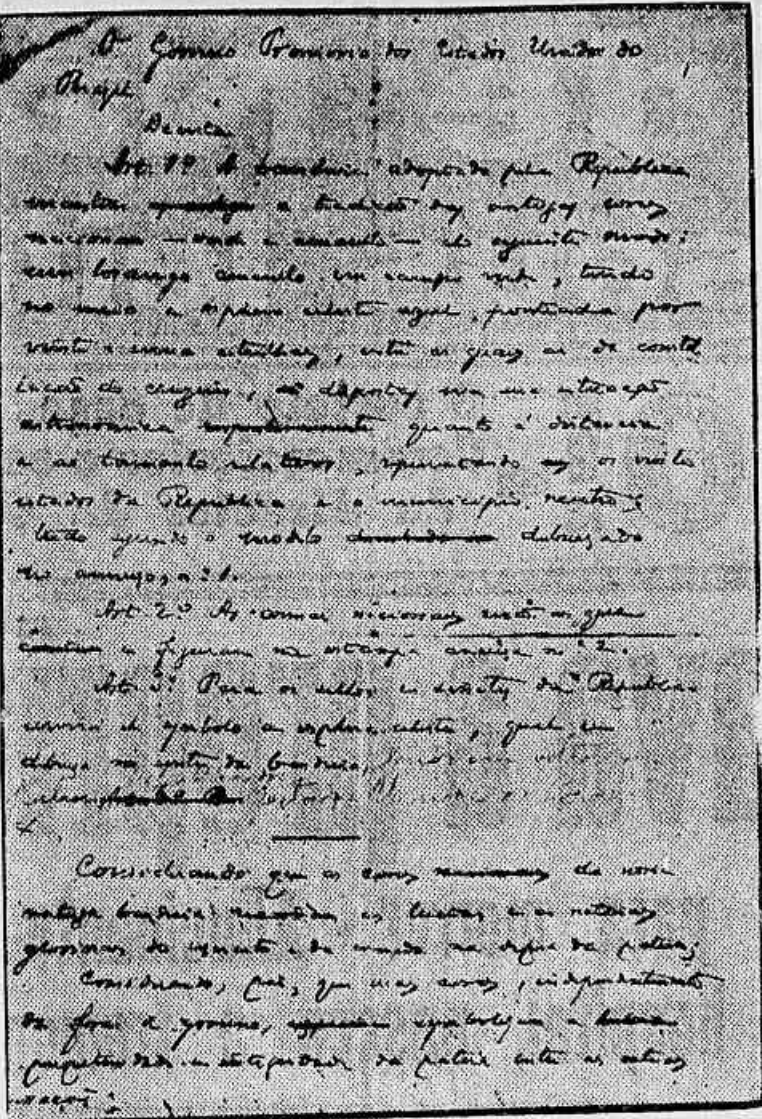 O Governo Provisorio dos Estados Unidos do
Brazil
Decreta
Art. 1º A bandeira adoptada pela Republica
mantem a tradição das antigas cores
nacionaes — verde e amarello — do seguinte modo:
um losango amarello em campo verde, tendo
no meio a esphera celeste azul, ponteada por
vinte e uma estrellas, entre as quaes as da constel
lação do cruzeiro, dispostas na sua situação
astronomica quanto á distancia
e ao tamanho relativos, representando os vinte
estados da Republica e o municipio neutro;
tudo segundo o modelo debuxado
no annexo n. 1.
Art. 2º As armas nacionaes são as que
se figuram na estampa annexa n. 2.
Art. 3º Para os sellos e sinetes da Republica
servirá de symbolo a esphera celeste, qual se
debuxa no centro da bandeira,
Considerando que as cores da nossa
antiga bandeira recordam as luctas e as victorias
gloriosas do exercito e da armada na defesa da patria;
Considerando, pois, que essas cores, independentemente
da forma de governo, symbolisam a
perpetuidade e integridade da patria entre as outras
nações;